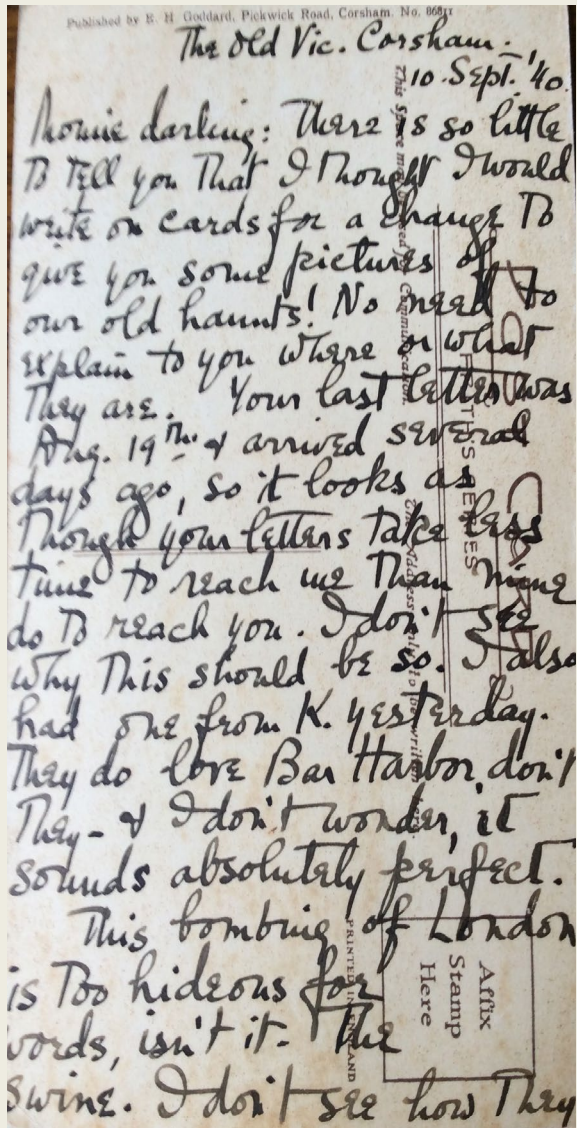 Published by E. H. Goddard, Pickwick Road, Corsham. No. 86811
The Old Vic. Corsham.
10. Sept. '40.
Momie darling: There is so little
to tell you that I thought I would
write on cards for a change to
give you some pictures of
our old haunts! No need to
explain to you where or what
they are. Your last letter was
Aug. 19th. & arrived several
days ago, so it looks as
though your letters take less
time to reach me than mine
do to reach you. I don't see
why this should be so. I also
had one from K. yesterday.
They do love Bar Harbor, don't
they – & I don't wonder, it
sounds absolutely perfect.
This bombing of London
is too hideous for
words, isn't it. The
swine. I don't see how they
This Space may be used for Communication.
The Address only to be written here.
POST CARD
THIS SERIES
PRINTED IN ENGLAND
Affix
Stamp
Here